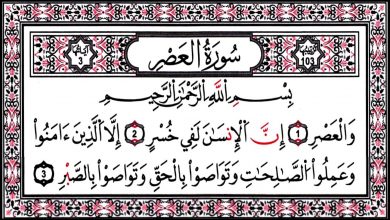 سُورَةُ العَصْرِ
آياتها 3
ترتيبها 103
بِسْمِ اللَّهِ الرَّحْمَٰنِ الرَّحِيمِ
وَالْعَصْرِ ① إِنَّ الْإِنسَانَ لَفِي خُسْرٍ ② إِلَّا الَّذِينَ ءَامَنُوا
وَعَمِلُوا الصَّالِحَاتِ وَتَوَاصَوْا بِالْحَقِّ وَتَوَاصَوْا بِالصَّبْرِ ③